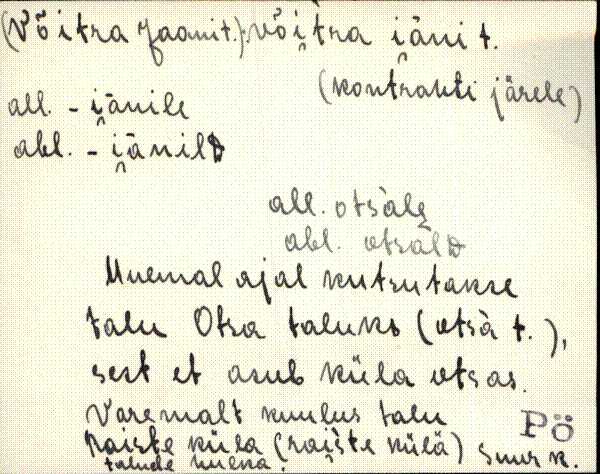 (Võitra Jaani t.) või̭tra i̭äni t.
(kontrahti järele)
all. - i̭änile
abl. - i̭änilD
all. otsàle
abl. otsàlD
Muemal ajal kutsutakse
talu Otsa taluks (otsà t.),
sest et asub küla otsas.
Varemalt kuulus talu
Raiste küla (rai̭ste külä) suur k.
talude hulka.
Pö